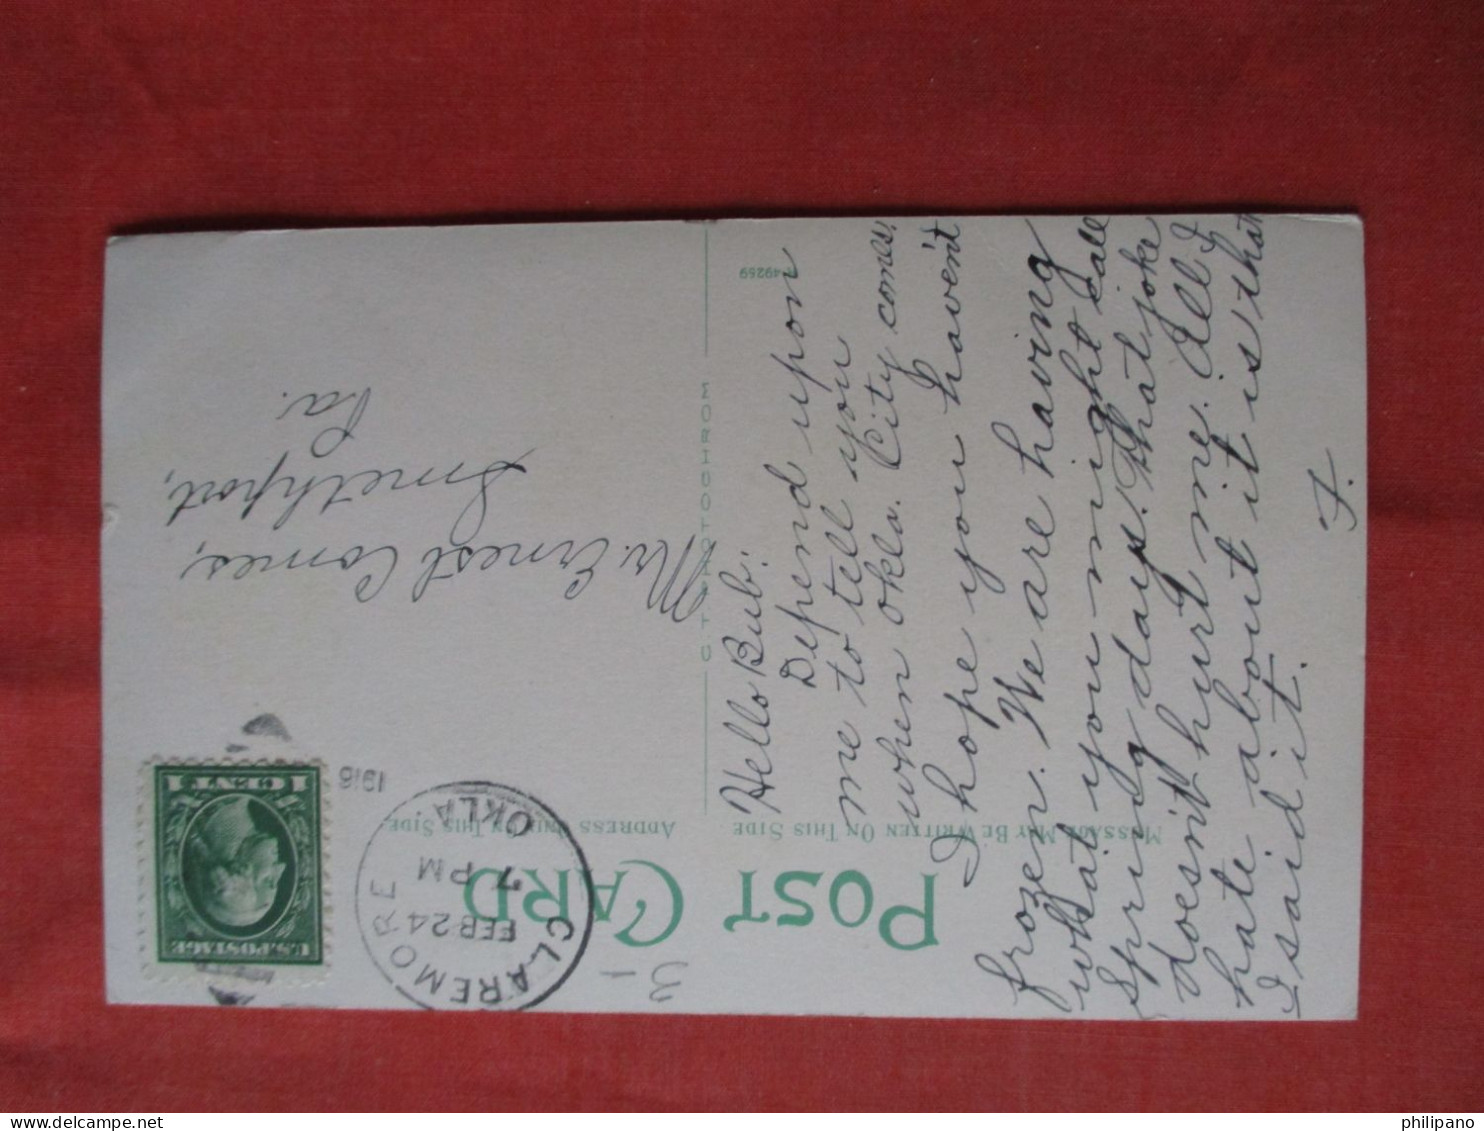 POST CARD
MESSAGE MAY BE WRITTEN ON THIS SIDE
ADDRESS ONLY ON THIS SIDE
C. T. PHOTOCHROM
A49259
Hello Bub:
Depend upon
me to tell you
when Okla. City comes.
I hope you haven't
frozen. We are having
what you might call
Spring days. That joke
doesn't hurt me. All I
hate about it is that
I said it.
F.
CLAREMORE
FEB 24
7 PM
OKLA
1916
U.S. POSTAGE
1 CENT 1
Mr. Ernest Comes,
Smethport,
Pa.
philipano